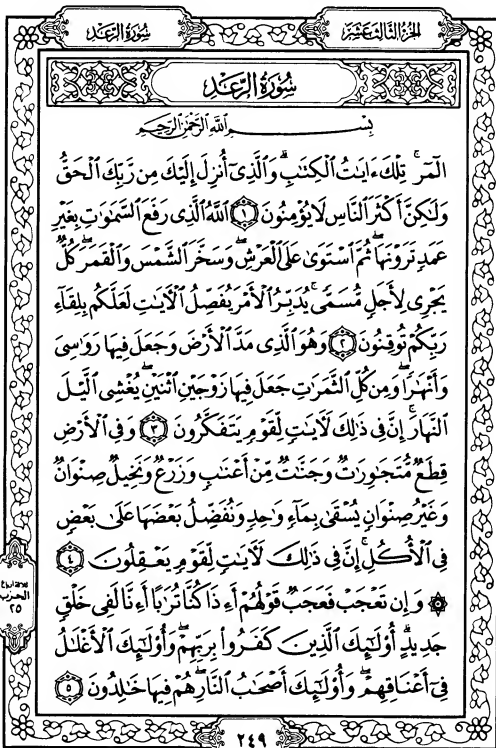 سُورَةُ الرَّعْدِ
الجُزْءُ الثَّالِثَ عَشَرَ
سُورَةُ الرَّعْدِ
بِسْمِ اللَّهِ الرَّحْمَٰنِ الرَّحِيمِ
الٓمٓرۚ تِلۡكَ ءَايَٰتُ ٱلۡكِتَٰبِۗ وَٱلَّذِيٓ أُنزِلَ إِلَيۡكَ مِن رَّبِّكَ ٱلۡحَقُّ
وَلَٰكِنَّ أَكۡثَرَ ٱلنَّاسِ لَا يُؤۡمِنُونَ ١ ٱللَّهُ ٱلَّذِي رَفَعَ ٱلسَّمَٰوَٰتِ بِغَيۡرِ
عَمَدٖ تَرَوۡنَهَاۖ ثُمَّ ٱسۡتَوَىٰ عَلَى ٱلۡعَرۡشِۖ وَسَخَّرَ ٱلشَّمۡسَ وَٱلۡقَمَرَۖ كُلّٞ
يَجۡرِي لِأَجَلٖ مُّسَمّٗىۚ يُدَبِّرُ ٱلۡأَمۡرَ يُفَصِّلُ ٱلۡأٓيَٰتِ لَعَلَّكُم بِلِقَآءِ
رَبِّكُمۡ تُوقِنُونَ ٢ وَهُوَ ٱلَّذِي مَدَّ ٱلۡأَرۡضَ وَجَعَلَ فِيهَا رَوَٰسِيَ
وَأَنۡهَٰرٗاۖ وَمِن كُلِّ ٱلثَّمَرَٰتِ جَعَلَ فِيهَا زَوۡجَيۡنِ ٱثۡنَيۡنِۖ يُغۡشِي ٱلَّيۡلَ
ٱلنَّهَارَۚ إِنَّ فِي ذَٰلِكَ لَأٓيَٰتٖ لِّقَوۡمٖ يَتَفَكَّرُونَ ٣ وَفِي ٱلۡأَرۡضِ
قِطَعٞ مُّتَجَٰوِرَٰتٞ وَجَنَّٰتٞ مِّنۡ أَعۡنَٰبٖ وَزَرۡعٞ وَنَخِيلٞ صِنۡوَانٞ
وَغَيۡرُ صِنۡوَانٖ يُسۡقَىٰ بِمَآءٖ وَٰحِدٖ وَنُفَضِّلُ بَعۡضَهَا عَلَىٰ بَعۡضٖ
فِي ٱلۡأُكُلِۚ إِنَّ فِي ذَٰلِكَ لَأٓيَٰتٖ لِّقَوۡمٖ يَعۡقِلُونَ ٤
ثلاثة أرباع
الحزب
٢٥
۞ وَإِن تَعۡجَبۡ فَعَجَبٞ قَوۡلُهُمۡ أَءِذَا كُنَّا تُرَٰبًا أَءِنَّا لَفِي خَلۡقٖ
جَدِيدٍۗ أُوْلَٰٓئِكَ ٱلَّذِينَ كَفَرُواْ بِرَبِّهِمۡۖ وَأُوْلَٰٓئِكَ ٱلۡأَغۡلَٰلُ
فِيٓ أَعۡنَاقِهِمۡۖ وَأُوْلَٰٓئِكَ أَصۡحَٰبُ ٱلنَّارِۖ هُمۡ فِيهَا خَٰلِدُونَ ٥
٢٤٩